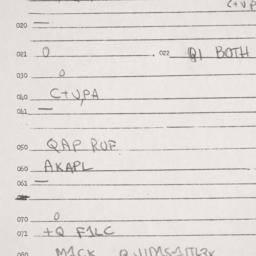 C+VP
020 —
021 O 022 Q1 BOTH
030 O
040 C+VPA
041 —
050 QAP RUF
060 AKAPL
061 —
070 O
071 +Q F1LC
080 M1CK